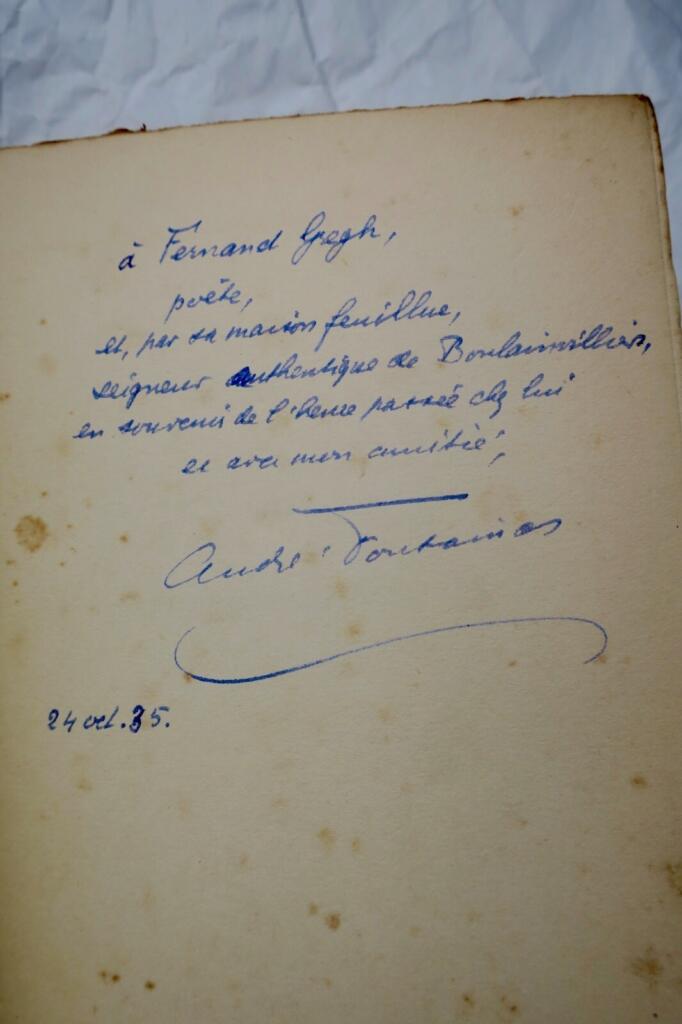 à Fernand Gregh,
poète,
et, par sa maison feuillue,
seigneur authentique de Boulainvilliers,
en souvenir de l'heure passée chez lui
et avec mon amitié,
André Fontainas
24 oct. 35.